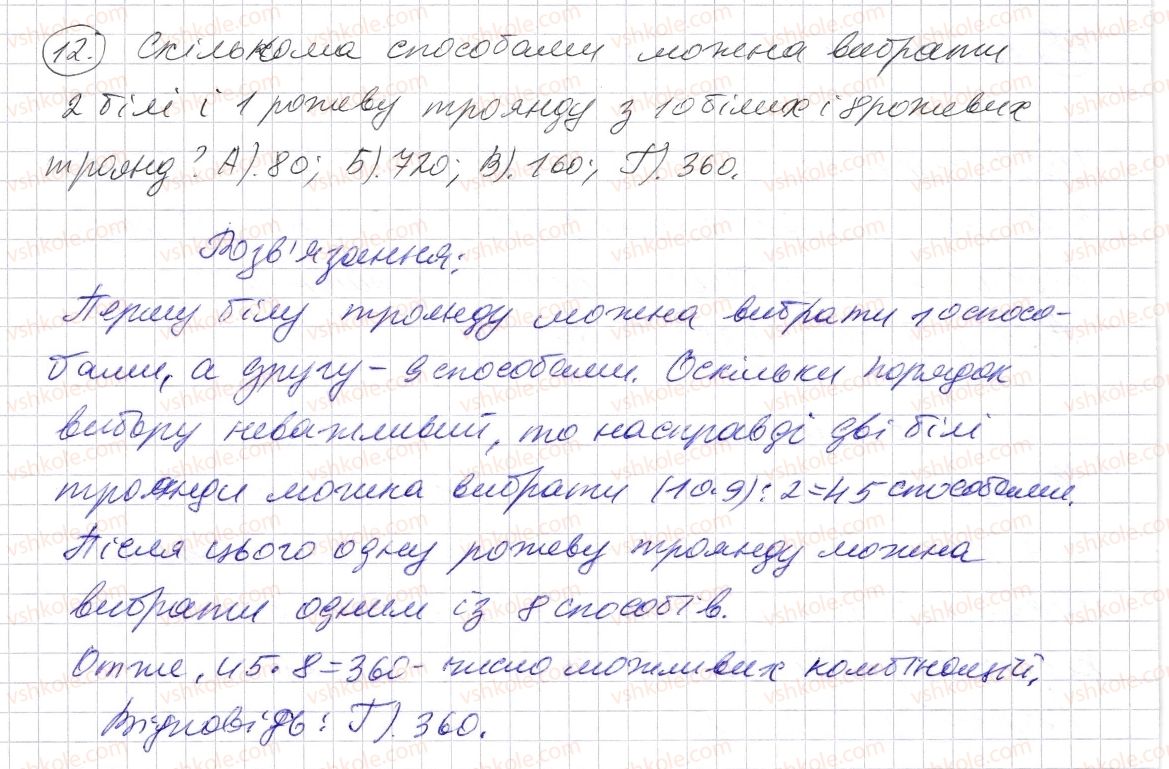 12. Скількома способами можна вибрати
2 білі і 1 рожеву троянду з 10 білих і 8 рожевих
троянд? А). 80; Б). 720; В). 160; Г). 360.
Розв'язання:
Першу білу троянду можна вибрати 10 спосо-
бами, а другу - 9 способами. Оскільки порядок
вибору неважливий, то насправді дві білі
троянди можна вибрати (10·9):2=45 способами.
Після цього одну рожеву троянду можна
вибрати одним із 8 способів.
Отже, 45·8=360- число можливих комбінацій.
Відповідь: Г). 360.